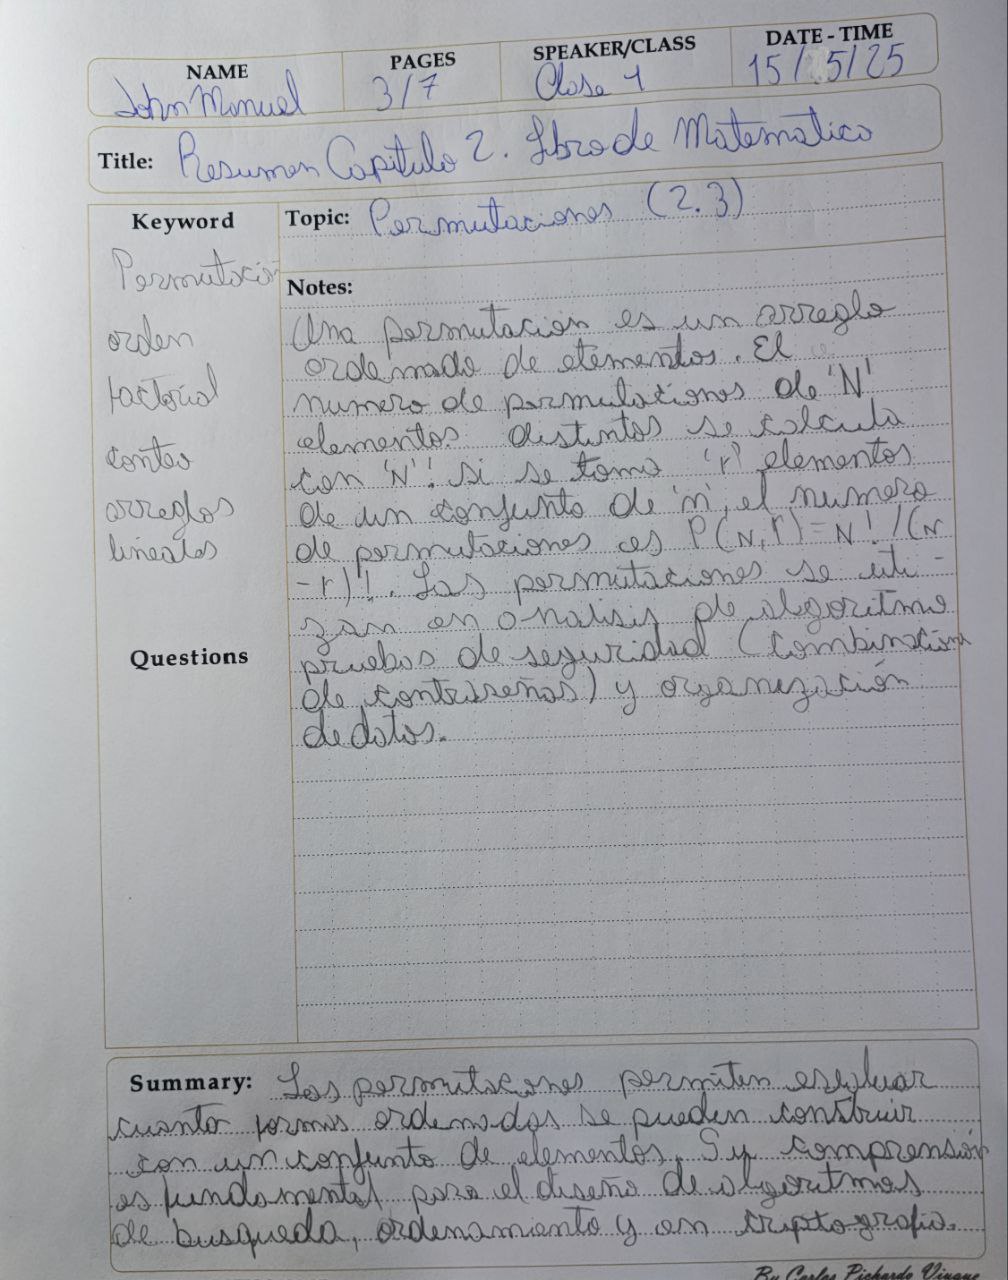 NAME PAGES SPEAKER/CLASS DATE - TIME
John Manuel 3/7 Clase 1 15/5/25
Title: Resumen Capitulo 2. Libro de Matematica
Keyword
Permutación
orden
factorial
conteo
arreglos
lineales
Questions
Topic: Permutaciones (2.3)
Notes:
Una permutación es un arreglo
ordenado de elementos. El
numero de permutaciones de 'N'
elementos distintos se calcula
con 'N'! si se toma 'r' elementos
de un conjunto de 'n', el numero
de permutaciones es P(N,r)=N!/(N
-r)!. Las permutaciones se uti-
zan en analisis de algoritmo
pruebas de seguridad (combinacion
de contraseñas) y organización
de datos.
Summary: Las permutaciones permiten evaluar
cuanta formas ordenadas se pueden construir
con un conjunto de elementos. Su comprensión
es fundamental para el diseño de algoritmos
de busqueda, ordenamiento y en criptografia.
By Carlos Pichardo Viuque